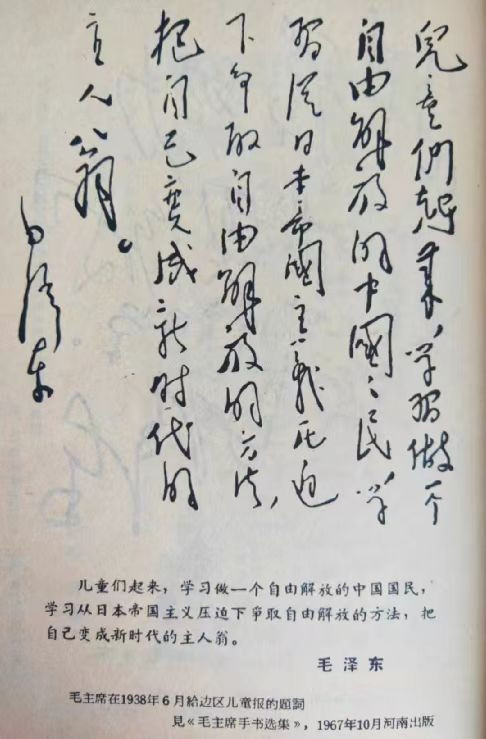 兒童們起来，学習做一个
自由解放的中國国民，学
習從日本帝國主義压迫
下争取自由解放的方法，
把自己变成新时代的
主人翁。
毛泽东
儿童们起来，学习做一个自由解放的中国国民，
学习从日本帝国主义压迫下爭取自由解放的方法，把
自己变成新时代的主人翁。
毛泽东
毛主席在1938年6月給边区儿童报的題詞
見《毛主席手书选集》，1967年10月河南出版